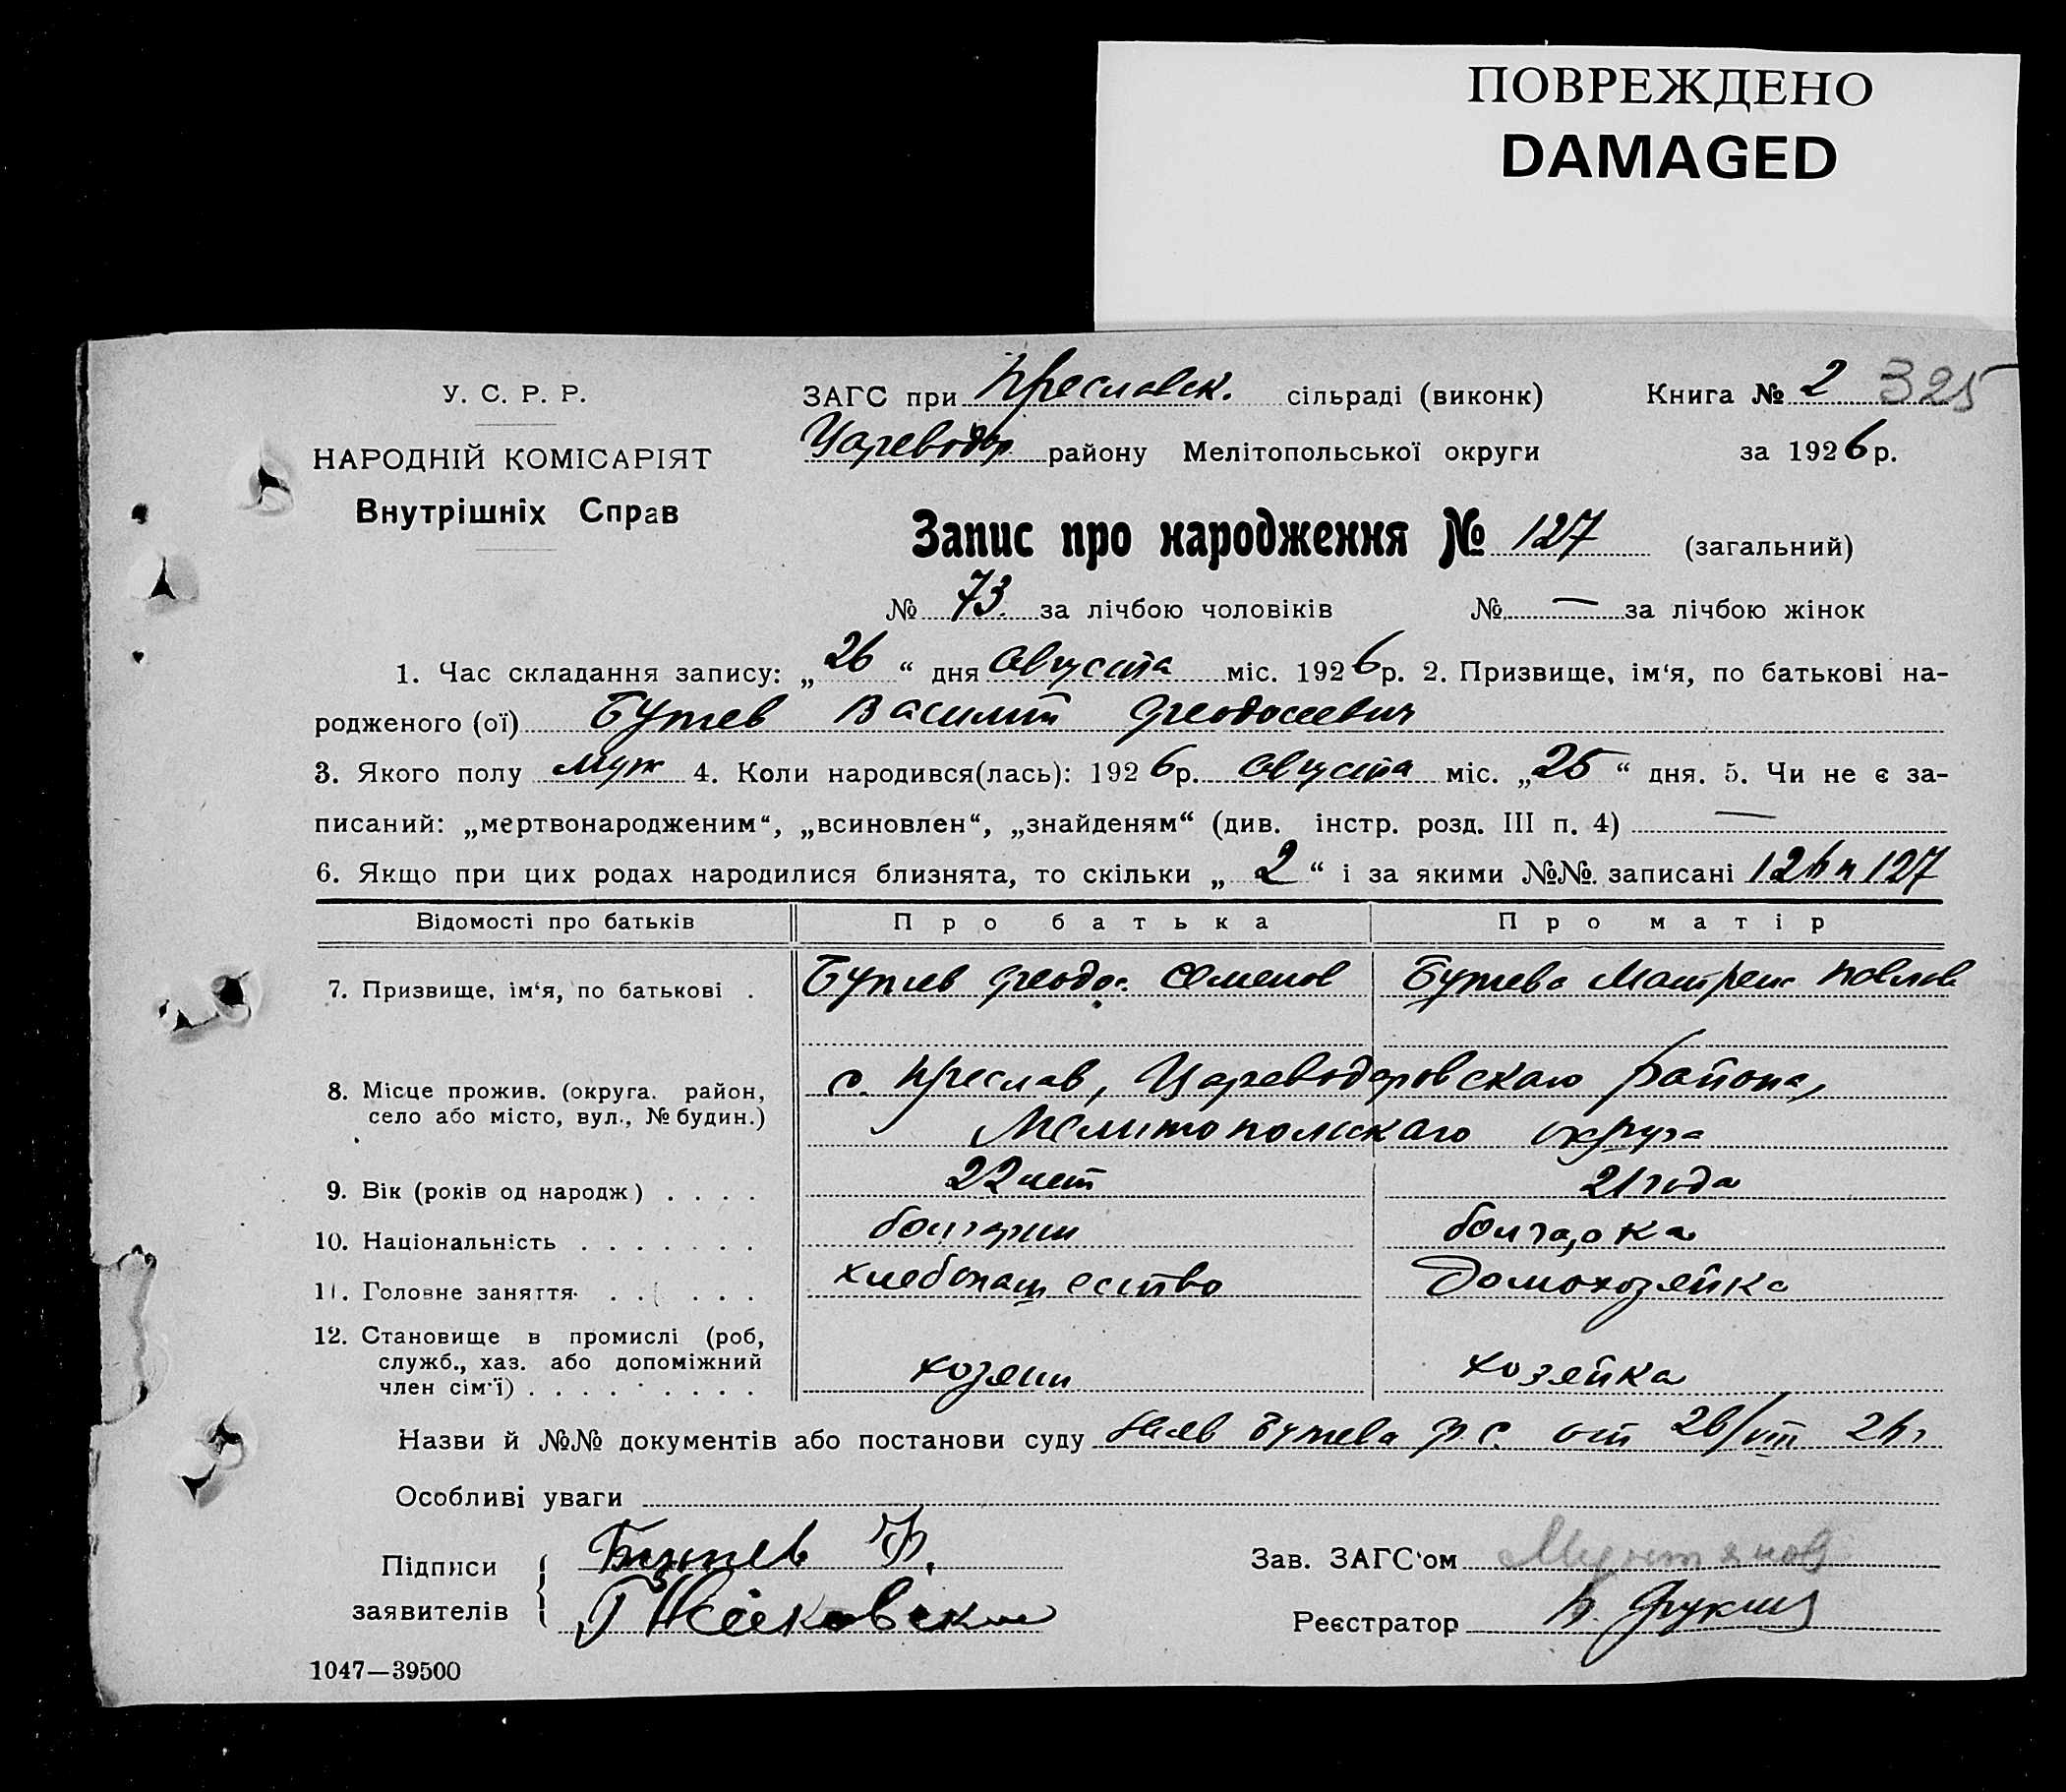 ПОВРЕЖДЕНО
DAMAGED
У. С. Р. Р.
НАРОДНІЙ КОМІСАРІЯТ
Внутрішніх Справ
ЗАГС при Преславск. сільраді (виконк) Книга № 2 325
Цареводар району Мелітопольської округи за 1926 р.
Запис про народження № 127 (загальний)
№ 73. за лічбою чоловіків № — за лічбою жінок
1. Час складання запису: „26“ дня августа міс. 1926 р. 2. Призвище, ім‘я, по батькові на-
родженого (ої) Василий Феодосеевич
3. Якого полу муж 4. Коли народився(лась): 1926 р. августа міс. „25“ дня. 5. Чи не є за-
писаний: „мертвонародженим“, „всиновлен“, „знайденям“ (див. інстр. розд. III п. 4) —
6. Якщо при цих родах народилися близнята, то скільки „2“ і за якими №№ записані 126 и 127
Відомості про батьків Про батька Про матір
7. Призвище, ім‘я, по батькові . Феодос. Семенов Матрена Павлов
8. Місце прожив. (округа. район, село або місто, вул., № будин.)
с. Преслав, Цареводаровскаго района,
Мелитопольскаго округа
9. Вік (років од народж) . . . . 22 лет 21 года
10. Національність . . . . . . . болгарин болгарка
11. Головне заняття . . . . . . хлебопашество домохозяйка
12. Становище в промислі (роб, служб., хаз. або допоміжний член сім‘ї) . . . . . . . . . хозяин хозяйка
Назви й №№ документів або постанови суду от 26/VIII 26 г
Особливі уваги
Підписи заявителів
Ф.
Зав. ЗАГС‘ом
Реєстратор
1047—39500